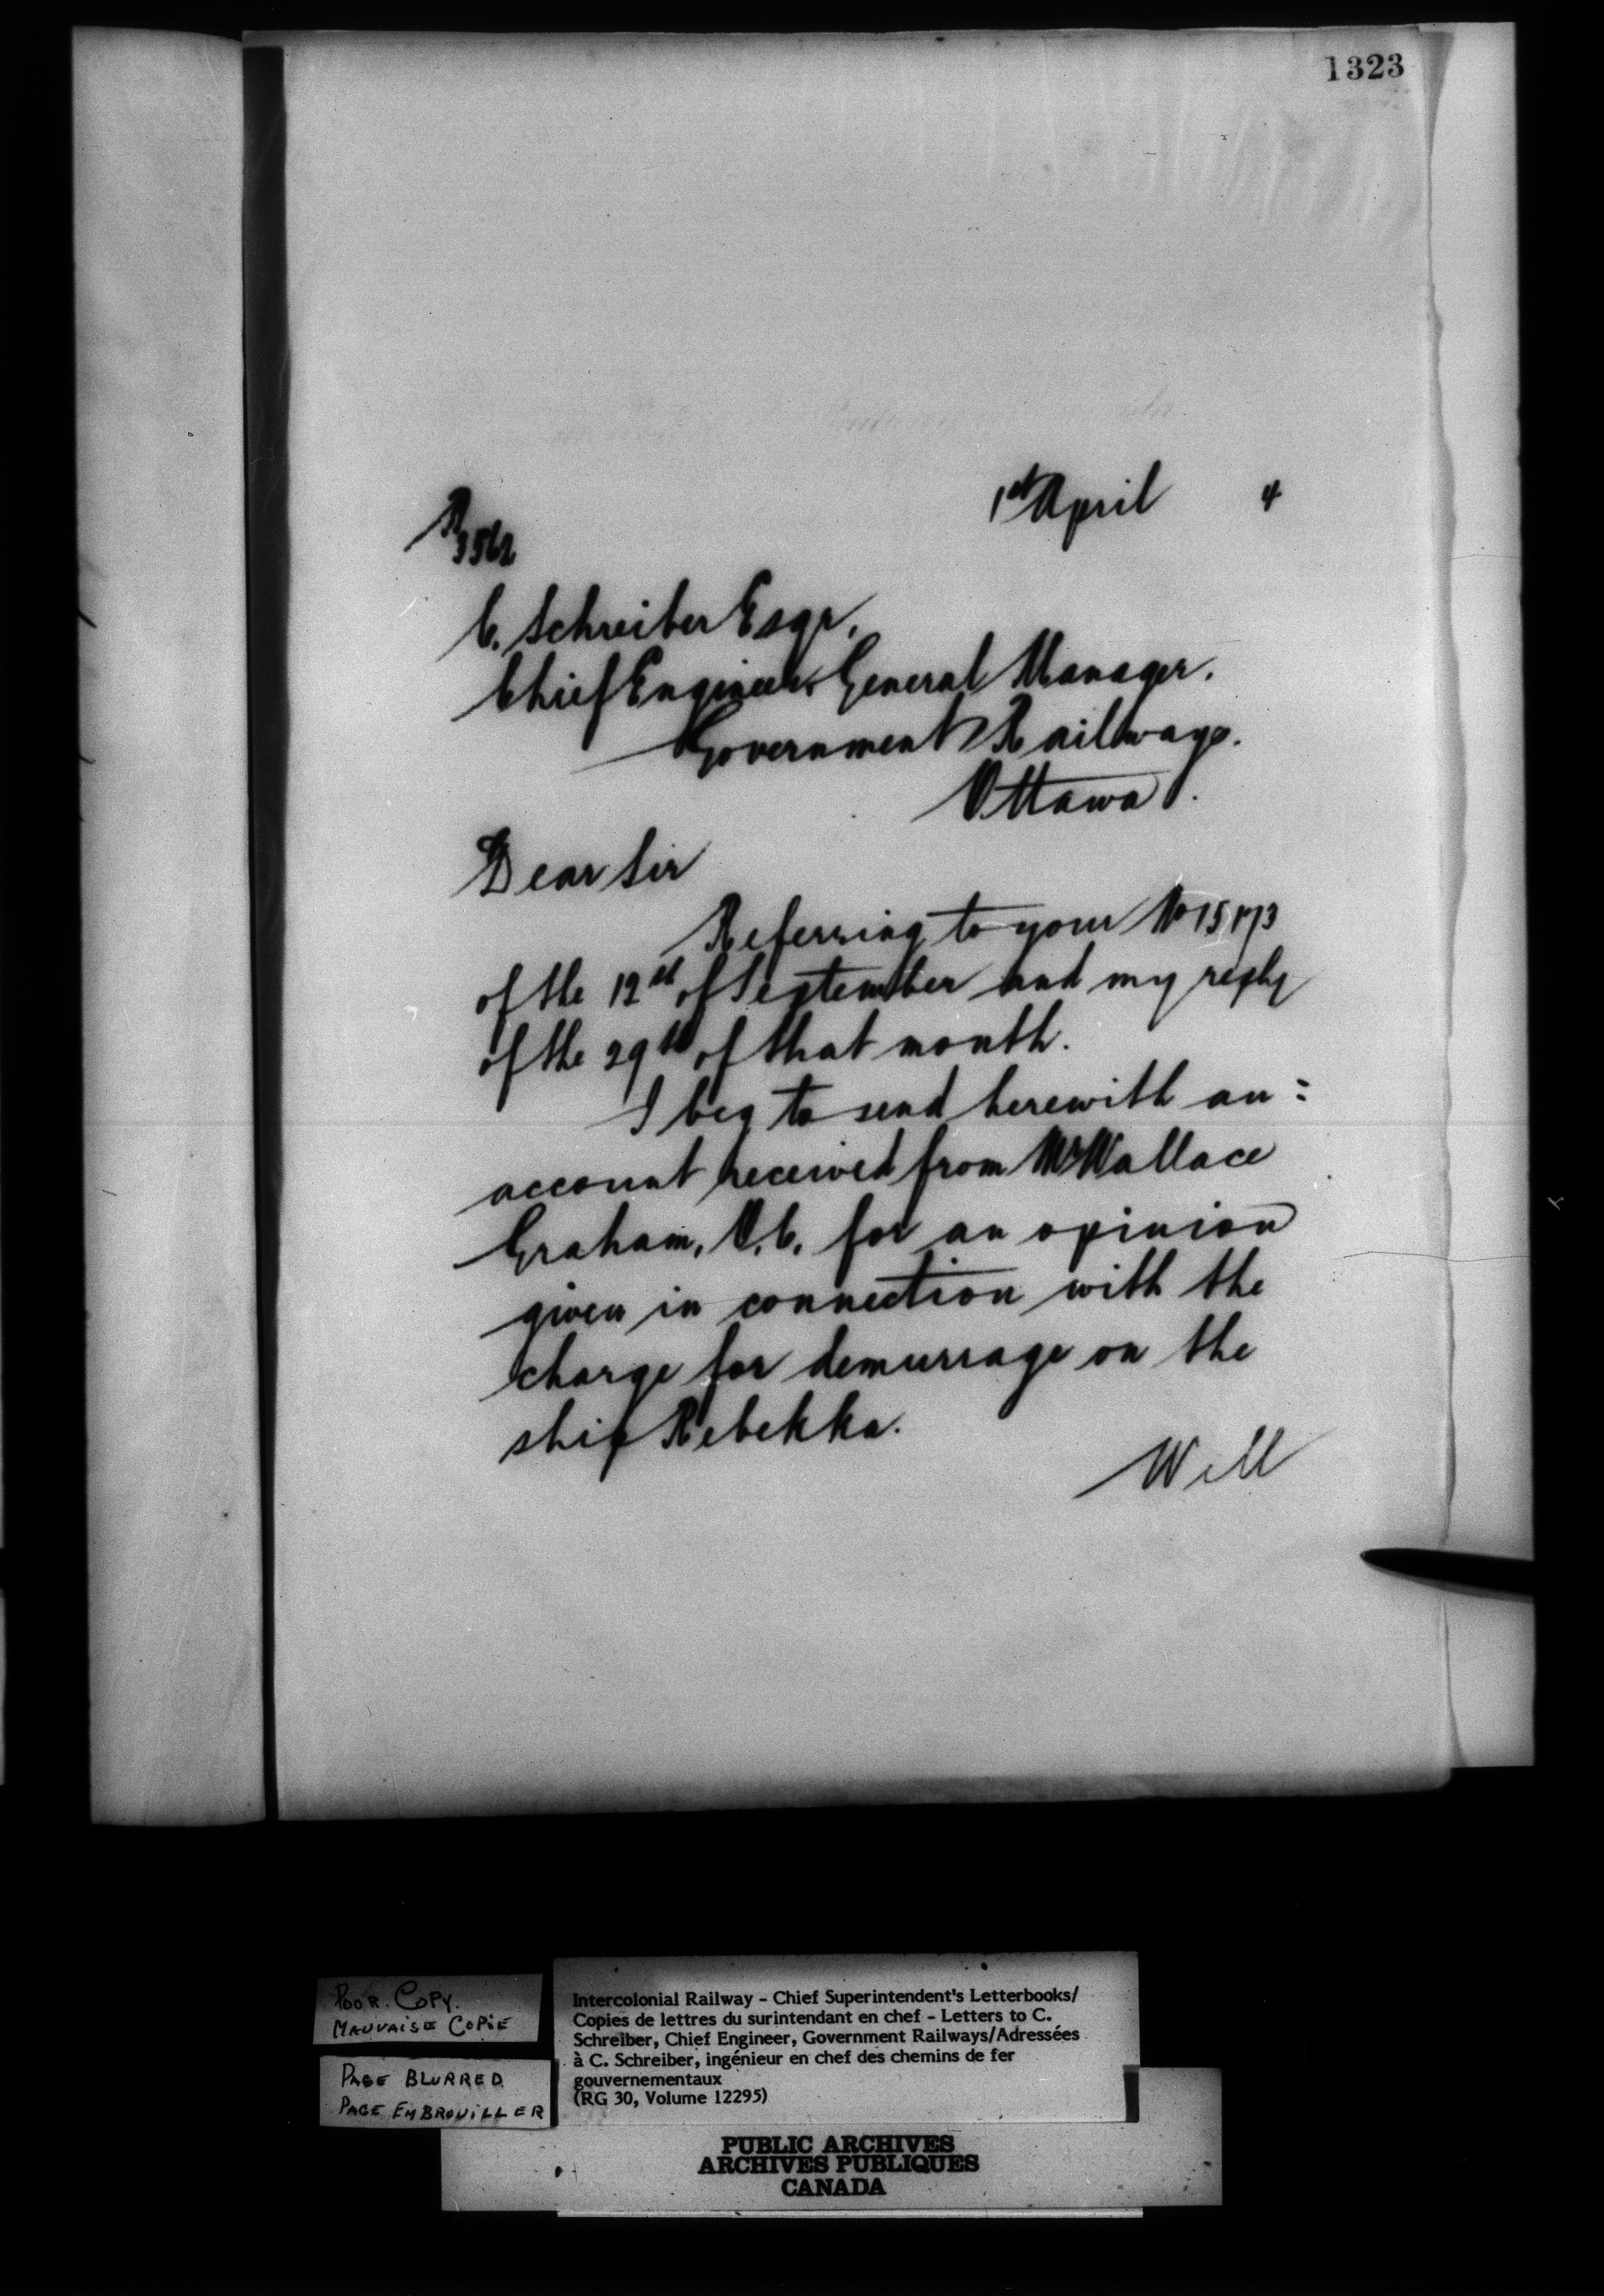 1323
1st April 4
R
3562
C. Schreiber Esqr,
Chief Engineer & General Manager.
Government Railways.
Ottawa.
Dear Sir
Referring to your No
of the 12th of September and my reply
of the 29th of that month.
I beg to send herewith an =
account received from Mr Wallace
Graham, Q.C. for an opinion
given in connection with the
charge for demurrage on the
ship Rebekka.
Will
POOR. COPY.
MAUVAISE COPIE
PAGE BLURRED
PAGE EMBROUILLER
Intercolonial Railway - Chief Superintendent's Letterbooks/
Copies de lettres du surintendant en chef - Letters to C.
Schreiber, Chief Engineer, Government Railways/Adressées
à C. Schreiber, ingénieur en chef des chemins de fer
gouvernementaux
(RG 30, Volume 12295)
PUBLIC ARCHIVES
ARCHIVES PUBLIQUES
CANADA